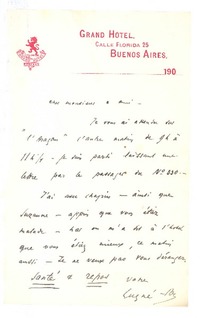 GRAND HOTEL
CALLE FLORIDA 25
BUENOS AIRES,
190
Mon monsieur & ami –
Je vous ai attendu
"l'Aragon" l'autre matin de 9h à
11h ¼ – je suis parti laissant une
lettre par le passager du No 220 –
J'ai avec chagrin – ainsi que
Suzanne – appris que vous étiez
malade – mais on m'a dit à l'hôtel
que vous étiez mieux, ce matin
aussi – Je ne veux pas vous déranger
Santé & repos
votre
Lugné-Poe